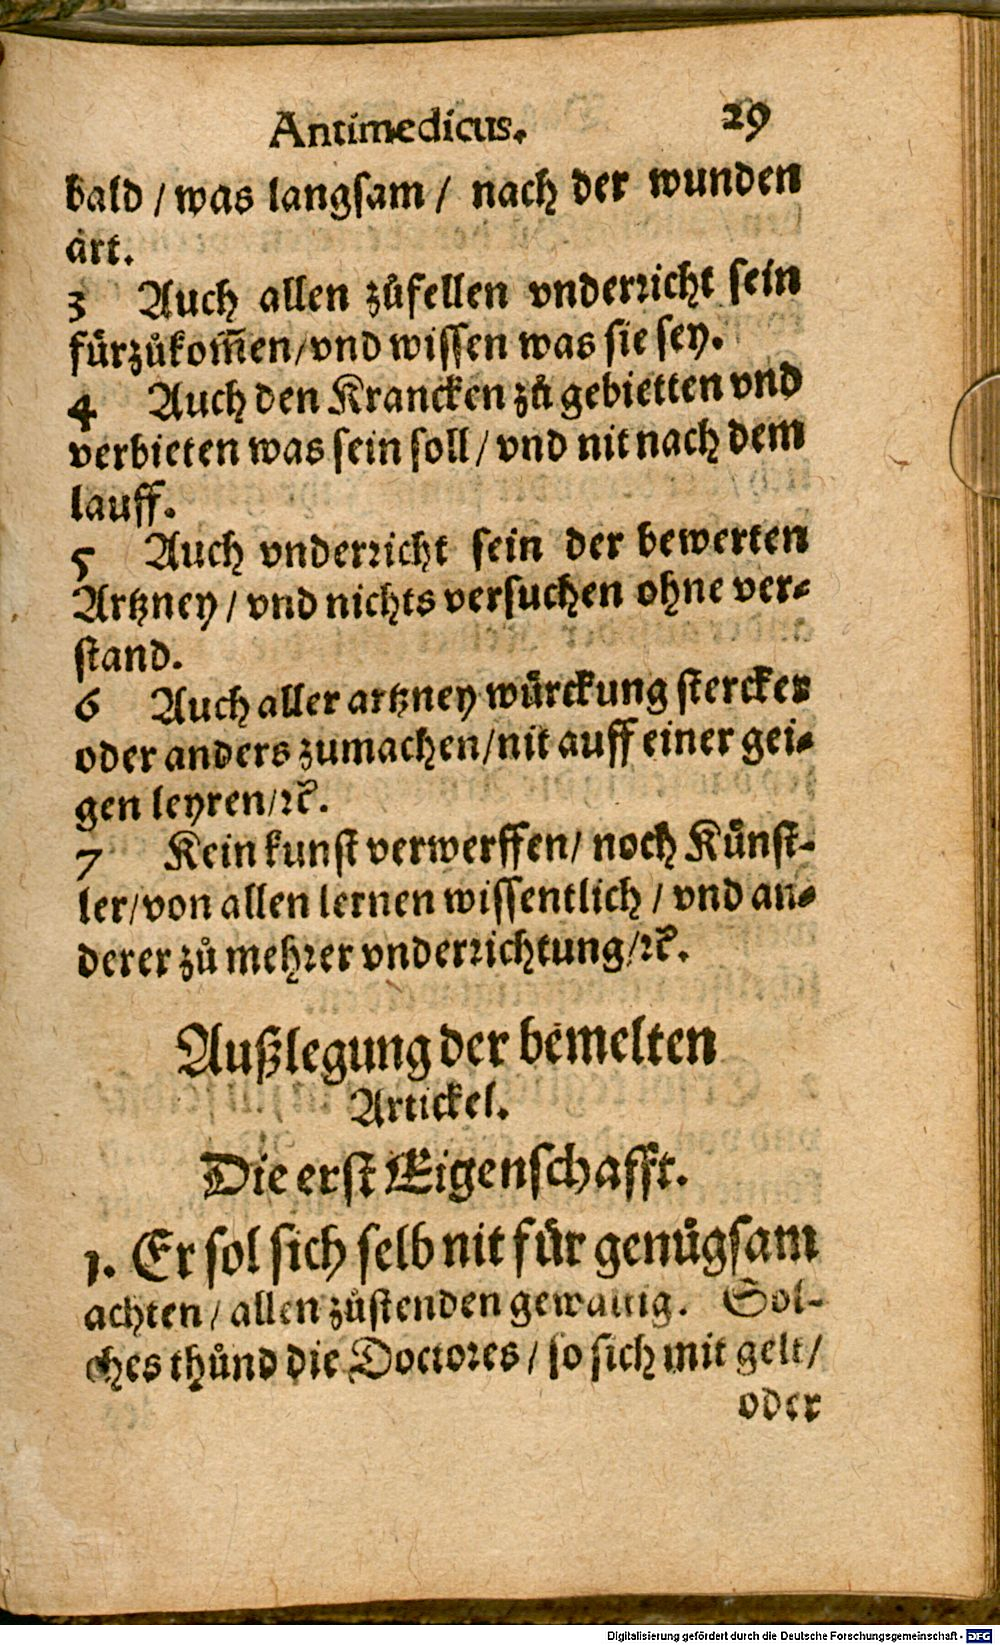 Antimedicus. 29
bald / was langsam / nach der wunden
art.
3 Auch allen zůfellen vnderricht sein
fürzůkom̅en / vnd wissen was sie sey.
4 Auch den Krancken zů gebietten vnd
verbieten was sein soll / vnd nit nach dem
lauff.
5 Auch vnderricht sein der bewerten
Artzney / vnd nichts versuchen ohne ver-
stand.
6 Auch aller artzney würckung stercker
oder anders zumachen / nit auff einer gei-
gen leyren / ꝛc.
7 Kein kunst verwerffen / noch Künst-
ler / von allen lernen wissentlich / vnd an-
derer zů mehrer vnderrichtung / ꝛc.
Außlegung der bemelten
Artickel.
Die erst Eigenschafft.
1. Er sol sich selb nit für genůgsam
achten / allen zůstenden gewaltig. Sol-
ches thůnd die Doctores / so sich mit gelt /
oder
Digitalisierung gefördert durch die Deutsche Forschungsgemeinschaft - DFG